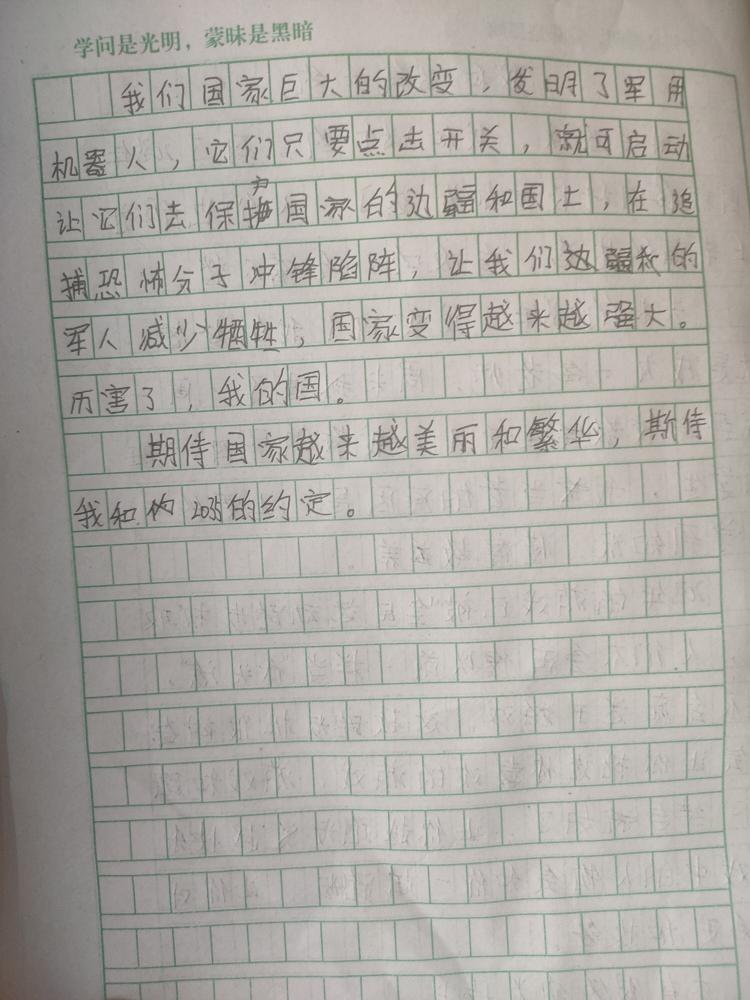 学问是光明，蒙昧是黑暗
我们国家巨大的改变，发明了军用
机器人，它们只要点击开关，就可启动
让它们去保护国家的边疆和国土，在追
捕恐怖分子冲锋陷阵，让我们边疆我的
军人减少牺牲，国家变得越来越强大。
厉害了，我的国。
期待国家越来越美丽和繁华，期待
我和的2035的约定。